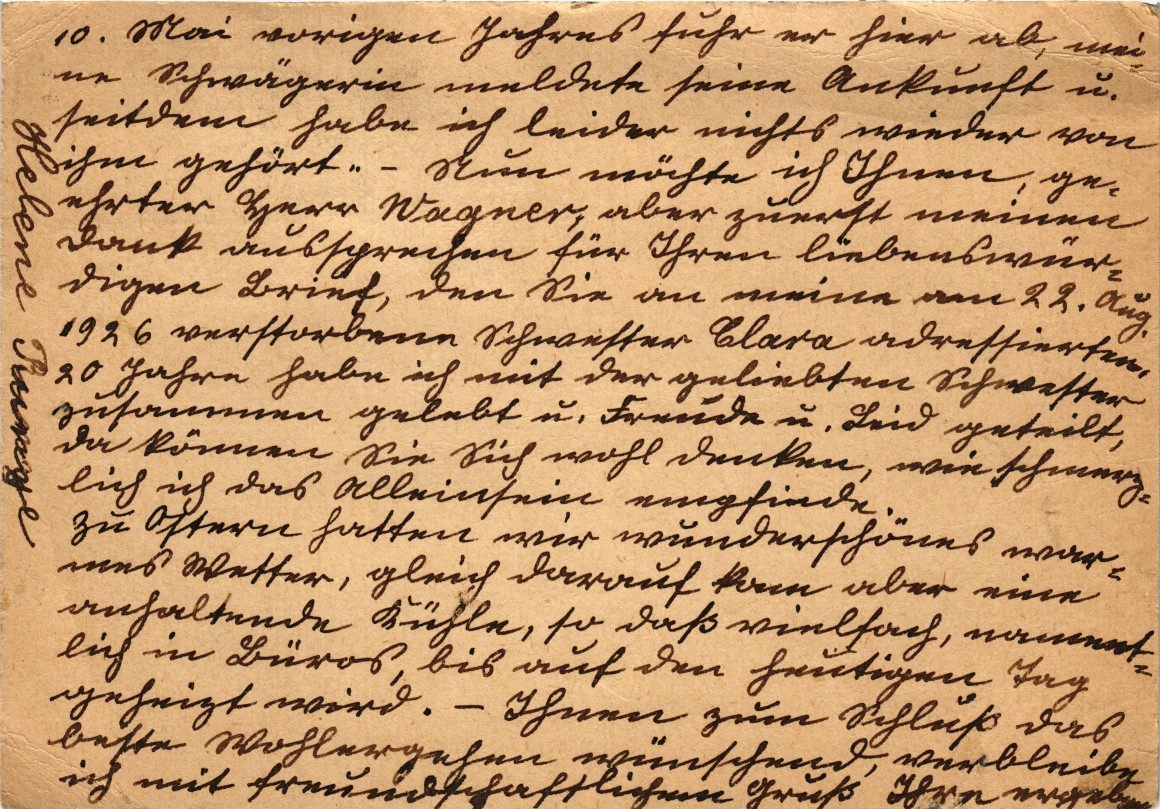 10. Mai vorigen Jahres fuhr er hier ab, mei-
ne Schwägerin meldete seine Ankunft u.
seitdem habe ich leider nichts wieder von
ihm gehört. - Nun möchte ich Ihnen, ge-
ehrter Herr Wagner, aber zuerst meinen
Dank aussprechen für Ihren liebenswür-
digen Brief, den Sie an meine am 22. Aug.
1926 verstorbene Schwester Clara adressierten.
20 Jahre habe ich mit der geliebten Schwester
zusammen gelebt u. Freude u. Leid geteilt,
da können Sie Sich wohl denken, wie schmerz-
lich ich das Alleinsein empfinde.
Zu Ostern hatten wir wunderschönes war-
mes Wetter, gleich darauf kam aber eine
anhaltende Kühle, so daß vielfach, nament-
lich in Büros, bis auf den heutigen Tag
geheizt wird. - Ihnen zum Schluß das
beste Wohlergehen wünschend, verbleibe
ich mit freundschaftlichem Gruß Ihre ergeben
Helene